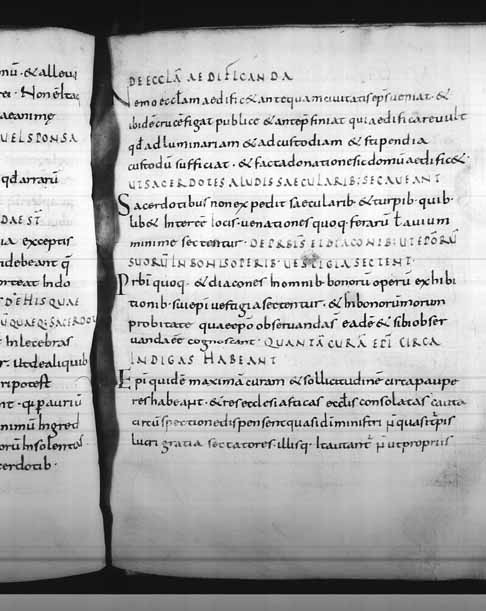 mū · & alleui
Non eſt ac
aeanime
UELSPONSA
qd arrarū
DAEST
ia exceptis
debeant q̄
orteat Indo
DEHISQUAE
ŪQUAEQ; SACERDO
Inlecebras
ut dealiquib
ripoteſt
nt · qp pauriū
nimū Ingred
orū Inſolentas
cerdotib ·
DEECCLĀ AEDIFICANDA
Nemo eccłam aedific& antequam ciuitatis eps̄ ueniat · &
ibidē crucē figat publice & ante pfiniat qui aedificare uult
qd ad luminariam & ad custodiam & ſtipendia
cuſtodū ſufficiat · & facta donatione ſic domū aedific& ·
UTSACERDOTES ALUDISSAECULARIB; SECAUEANT
Sacerdotibus non expedit ſaecularib · & turpib · quib ·
lib& Intereē locis · uenationes quoq · ferarū ł auium
minime ſectentur · DEPRBIS ET DIACONIB; UTEPORŪ
SUORŪ IN BONIS OPERIB · UESTIGIA SECTENT ·
Prbi quoq · & diacones In omnib · bonorū operū exhibi
tionib · sui epi ueſtigia ſectentur · & In bonorū morum
probitate quae epo obſeruandas eadē & ſibi obſer
uanda eē cognoſcant · QUANTĀ CURĀ EPI CIRCA
INDIGAS HABEANT
Epi quidē maximā curam & ſollicitudinē circa paupe
res habeant · & res eccleſiaſticas eccłis conſolatas cauta
circūſpectione diſpenſent quaſi di miniſtri n̄ quaſi tpis
lucri gratia ſectatores illiſq · Ita utant n̄ ut propriis